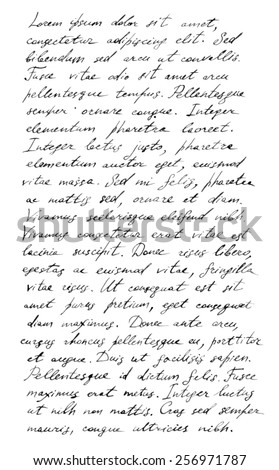 Lorem ipsum dolor sit amet,
consectetur adipiscing elit. Sed
bibendum sed arcu ut convallis.
Fusce vitae odio sit amet arcu
pellentesque tempus. Pellentesque
semper ornare congue. Integer
elementum pharetra laoreet.
Integer lectus justo, pharetra
elementum auctor eget, euismod
vitae massa. Sed mi felis, pharetra
ac mattis sed, ornare et diam.
Vivamus scelerisque eleifend nibh.
Vivamus consectetur erat vitae est
lacinia suscipit. Donec risus libero,
egestas ac euismod vitae, fringilla
vitae risus. Ut consequat est sit
amet purus pretium, eget consequat
diam maximus. Donec ante arcu,
cursus rhoncus pellentesque eu, porttitor
et augue. Duis ut facilisis sapien.
Pellentesque id dictum felis. Fusce
maximus erat metus. Integer luctus
ut nibh non mattis. Cras sed semper
mauris, congue ultricies nibh.
shutterstock
www.shutterstock.com · 256971787